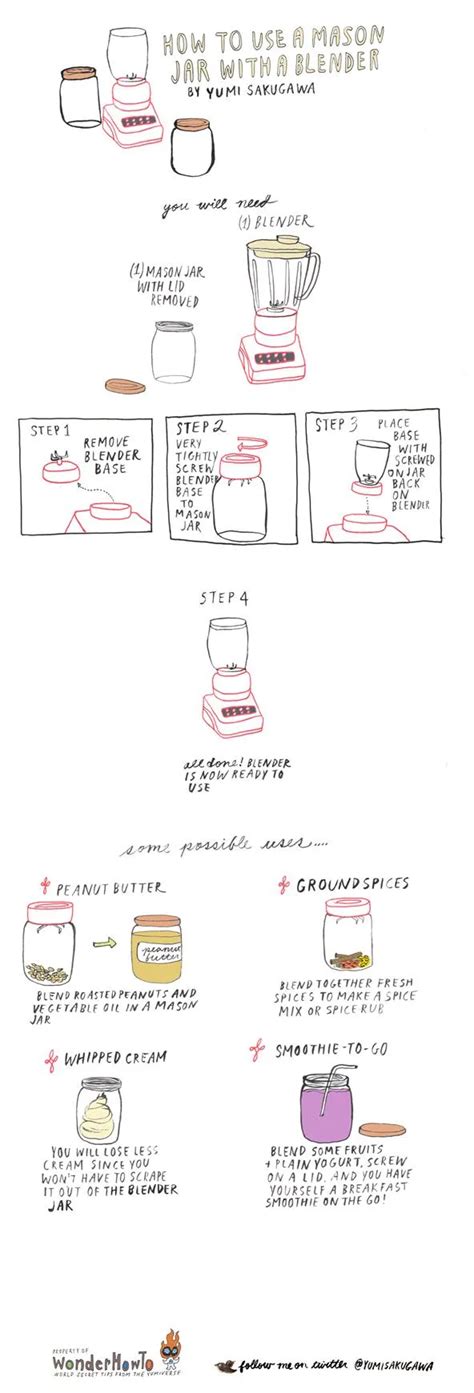 HOW TO USE A MASON
JAR WITH A BLENDER
BY YUMI SAKUGAWA
you will need
(1) BLENDER
(1) MASON JAR
WITH LID
REMOVED
STEP 1
REMOVE
BLENDER
BASE
STEP 2
VERY
TIGHTLY
SCREW
BLENDER
BASE
TO
MASON
JAR
STEP 3
PLACE
BASE
WITH
SCREWED
ON JAR
BACK
ON
BLENDER
STEP 4
all done! BLENDER
IS NOW READY TO
USE
some possible uses....
PEANUT BUTTER
peanut
butter
BLEND ROASTED PEANUTS AND
VEGETABLE OIL IN A MASON
JAR
GROUND SPICES
BLEND TOGETHER FRESH
SPICES TO MAKE A SPICE
MIX OR SPICE RUB
WHIPPED CREAM
YOU WILL LOSE LESS
CREAM SINCE YOU
WON'T HAVE TO SCRAPE
IT OUT OF THE BLENDER
JAR
SMOOTHIE-TO-GO
BLEND SOME FRUITS
+ PLAIN YOGURT, SCREW
ON A LID, AND YOU HAVE
YOURSELF A BREAKFAST
SMOOTHIE ON THE GO!
PROPERTY OF
WonderHowTo
WORLD SECRET TIPS FROM THE YUMIVERSE
follow me on twitter @YUMISAKUGAWA